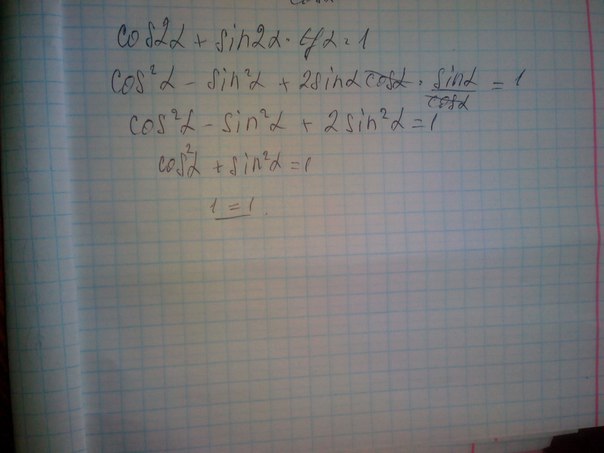 cos2α + sin2α · tgα = 1
cos²α - sin²α + 2sinα cosα · sinα/cosα = 1
cos²α - sin²α + 2sin²α = 1
cos²α + sin²α = 1
1 = 1.